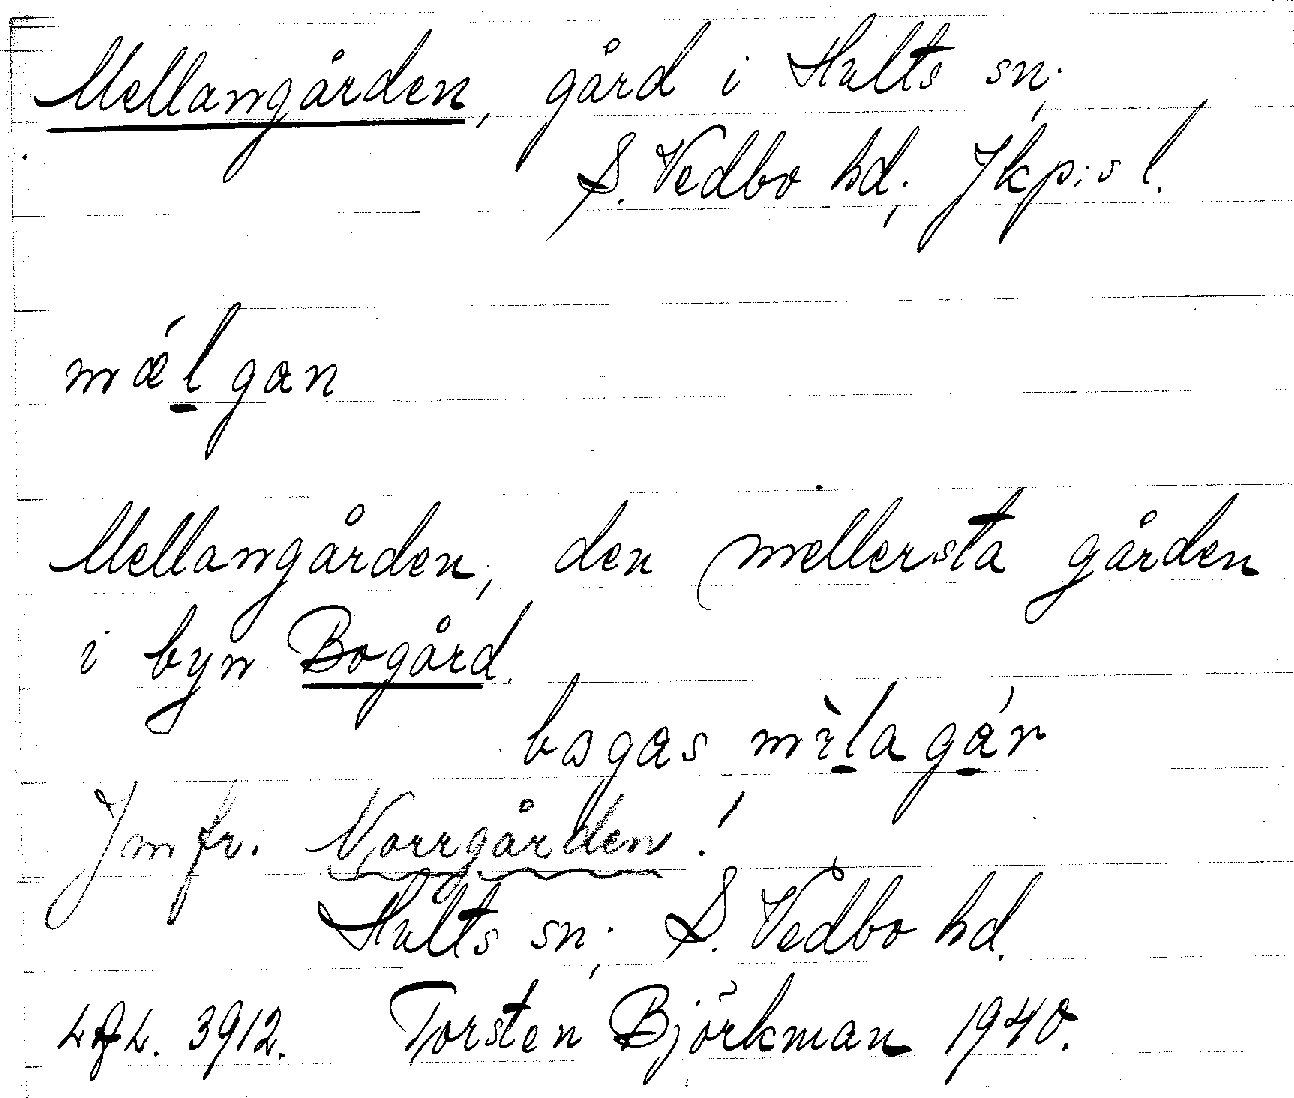 Mellangården, gård i Hults sn;
S. Vedbo hd; Jkp:s l.
mǽlgan
Mellangården, den mellersta gården
i byn Bogård.
bogas mìlagár
Jmfr. Norrgården!
Hults sn; S. Vedbo hd.
3912. Torsten Björkman 1940.